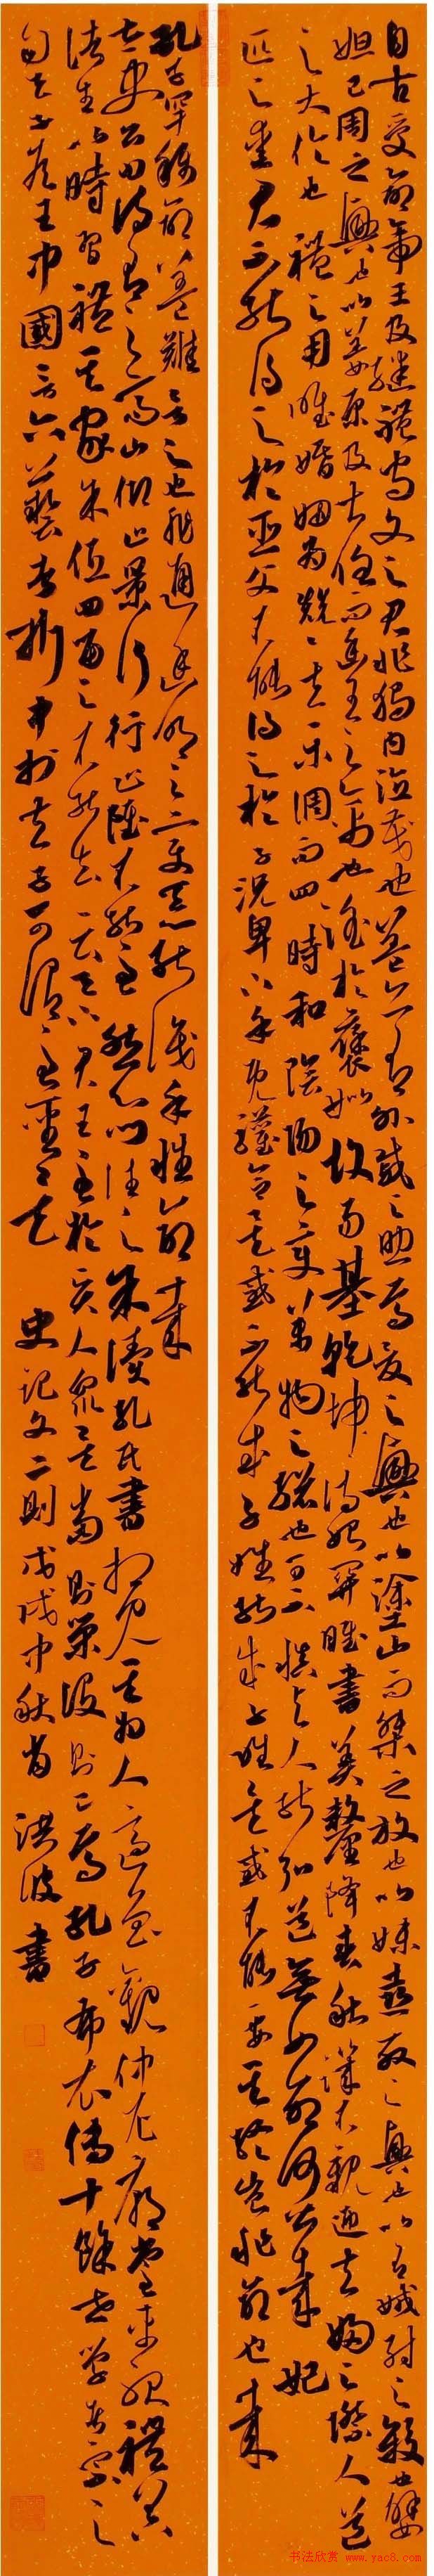 自古受命帝王及繼體守文之君非獨內德茂也蓋亦有外戚之助焉夏之興也以塗山而桀之放也以妹喜殷之興也以有娀紂之殺也嬖
妲己周之興也以姜原及大任而幽王之禽也淫於褒姒故易基乾坤詩始關雎書美釐降春秋譏不親迎夫婦之際人道
之大倫也禮之用唯婚姻為兢兢夫樂調而四時和陰陽之變萬物之統也可不慎與人能弘道無如命何甚哉妃
匹之愛君不能得之於臣父不能得之於子況卑下乎既驩合矣或不能成子姓能成子姓矣或不能要其終豈非命也哉
孔子罕稱命蓋難言之也非通幽明之變惡能識乎性命哉
太史公曰詩有之高山仰止景行行止雖不能至然心鄉往之余讀孔氏書想見其為人適魯觀仲尼廟堂車服禮器
諸生以時習禮其家余低回留之不能去云天下君王至於賢人眾矣當則榮沒則已焉孔子布衣傳十餘世學者宗之
自天子王侯中國言六藝者折中於夫子可謂至聖矣 史記文二則戊戌中秋前洪波書
书法欣赏 www.yac8.com